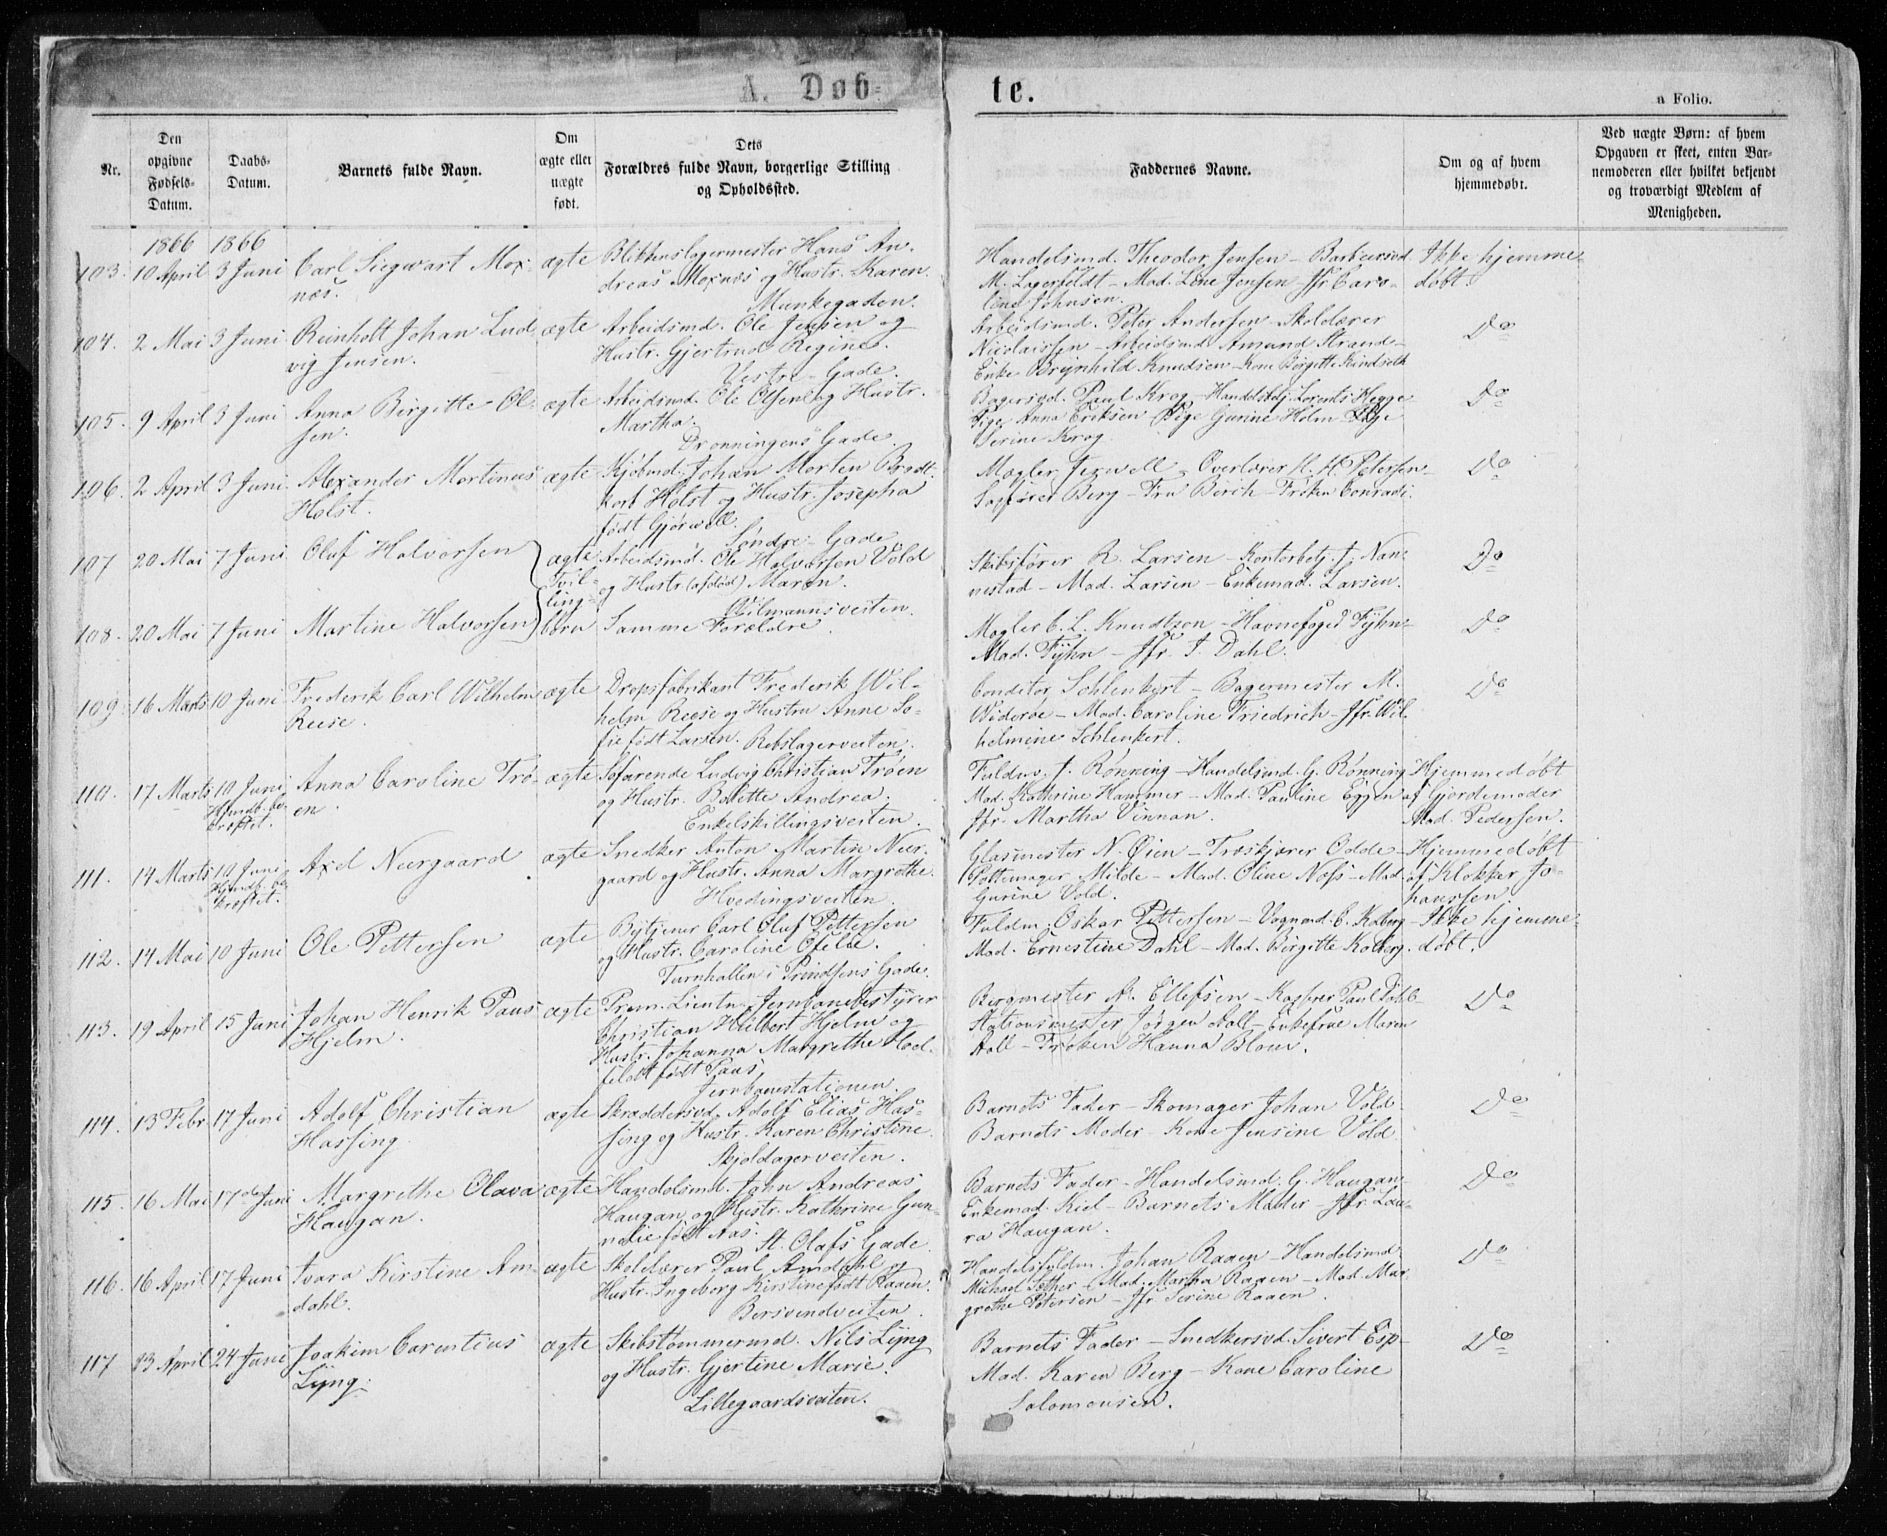 A. Døbte.
a Folio.
Nr.
Den opgivne Fødsels-Datum.
Daabs-Datum.
Barnets fulde Navn.
Om ægte eller uægte født.
Dets Forældres fulde Navn, borgerlige Stilling og Opholdssted.
Faddernes Navne.
Om og af hvem hjemmedøbt.
Ved uægte Børn: af hvem Opgaven er skeet, enten Barnemoderen eller hvilket bekjendt og troværdigt Medlem af Menigheden.
1866 1866
103. 10 April 3 Juni Carl Siegwart Mox-
næs.
ægte
Blikkenslagermester Hans An-
dreas Moxnæs og Hustr. Karen.
Munkegaden.
Handelsmd. Theodor Jensen – Barbeersvd
M. Lagerfeldt – Mad. Line Jensen – Jfr. Caro-
line Johnsen.
Ikke hjemme-
døbt.
104. 2 Mai 3 Juni Reinholt Johan Lud-
vig Jensen.
ægte
Arbeidsmd. Ole Jensen og
Hustr. Gjertrud Regine.
Vestre Gade.
Arbeidsmd. Peter Andersen – Skolelærer
Nicolaissen – Arbeidsmd. Amund Strand –
Enke Brynhild Knudsen – Kone Birgitte Kindseth
Do
105. 9 April 3 Juni Anna Birgitte Ol-
sen.
ægte
Arbeidsmd. Ole Olsen og Hustr.
Martha.
Dronningens Gade.
Bagersvd. Paul Krog – Handelsbetj. Lorents Hegge
Pige Anna Eriksen – Pige Gjurine Holm – Pige
Serine Krog.
Do
106. 2 April 3 Juni Alexander Mortinus
Holst.
ægte
Kjøbmd. Johan Morten Brodt-
korb Holst og Hustr. Josepha
født Gjørwell.
Søndre Gade.
Mægler Jerwell – Overlærer H. H. Petersen –
Sagfører Berg – Fru Birch – Frøken Conradi.
Do
107 20 Mai 7 Juni Oluf Halvorsen
ægte
Tvil-
ling-
børn
Arbeidsmd. Ole Halvorsen Vold
og Hustr. (afdød) Maren.
Wilmannsveiten.
Skibsfører R. Larsen – Kontorbetj. J. Nan-
nestad – Mad. Larsen – Enkemad. Larsen.
Do
108. 20 Mai 7 Juni Martine Halvorsen
Samme Forældre.
Mægler C. L. Knudtzon – Havnefoged Fyhn –
Mad. Fyhn – Jfr. J. Dahl.
Do
109. 16 Marts 10 Juni Frederik Carl Wilhelm
Reese.
ægte
Dropsfabrikant Frederik Wil-
helm Reese og Hustru Anne So-
fie født Larsen. Rebslagerveiten.
Conditor Schlenkert – Bagermester M.
Widerøe – Mad. Caroline Friedrich – Jfr. Wil-
helmine Schlenkert.
Do
110. 17 Marts 10 Juni
Hjmdb. be-
kræftet.
Anna Caroline Trø-
en.
ægte
Søfarende Ludvig Christian Trøen
og Hustr. Bolette Andrea.
Enkelskillingsveiten.
Fuldm. J. Rønning – Handelsmd. G. Rønning
Mad. Kathrine Hammer – Mad. Pauline Eggen
Jfr. Martha Vinnan.
Hjemmedøbt
af Gjordemoder
Mad. Pedersen.
111. 14 Marts 10 Juni
Hjmdb. be-
kræftet.
Axel Neergaard
ægte
Snedker Anton Martin Neer-
gaard og Hustr. Anna Margrethe.
Hvedingsveiten.
Glasmester N. Øien – Træskjærer Odde –
Pottemager Milde – Mad. Oline Næss – Mad.
Gurine Vold.
Hjemmedøbt
af Klokker Jo-
hanssen.
112. 14 Mai 10 Juni Ole Pettersen
ægte
Bytjener Carl Oluf Pettersen
og Hustr. Caroline Ofelie.
Turnhallen i Prindsens Gade.
Fuldm. Oskar Pettersen – Vognmd. C. Kolberg –
Mad. Ernestine Dahl – Mad. Birgitte Kolberg.
Ikke hjemme-
døbt.
113. 19 April 15 Juni Johan Henrik Paus
Hjelm.
ægte
Prem. Lieutn. Jernbanebestyrer
Christian Hilbert Hjelm og
Hustr. Johanna Margrethe Hoel-
feldt født Paus.
Jernbanestationen.
Bergmester A. Ellefsen – Kasserer Paul Dahl
Stationsmester Jørgen Aall – Enkefrue Maren
Aall – Frøken Hanna Blom.
Do
114. 13 Febr. 17 Juni Adolf Christian
Hassing.
ægte
Skræddersvd. Adolf Elias Has-
sing og Hustr. Karen Christine.
Skjoldagerveiten.
Barnets Fader – Skomager Johan Vold.
Barnets Moder – Kone Jensine Vold.
Do
115. 16 Mai 17de Juni Margrethe Olava
Haugan.
ægte
Handelsmd. John Andreas
Haugan og Hustr. Kathrine Gun-
nelie født Aas.
St. Olafs Gade.
Barnets Fader – Handelsmd. G. Haugan –
Enkemad. Kiel – Barnets Moder – Jfr. Lau-
ra Haugan.
Do
116. 16 April 17 Juni Ivara Kirstine Am-
dahl.
ægte
Skolelærer Paul Amdahl og
Hustr. Ingeborg Kirstine født Raaen.
Bersvendveiten.
Handelsfuldm. Johan Raaen – Handelsmd.
Michael Sæther – Mad. Martha Raaen – Mad. Mar-
grethe Petersen – Jfr. Serine Raaen.
Do
117 23 April 24 Juni Joakim Carentius
Lyng.
ægte
Skibstømmermd. Nils Lyng
og Hustr. Gjertine Marie.
Lillegaardsveiten.
Barnets Fader – Snedkersvd. Sivert Esp –
Mad. Karen Berg – Kone Caroline
Salomonsen.
Do